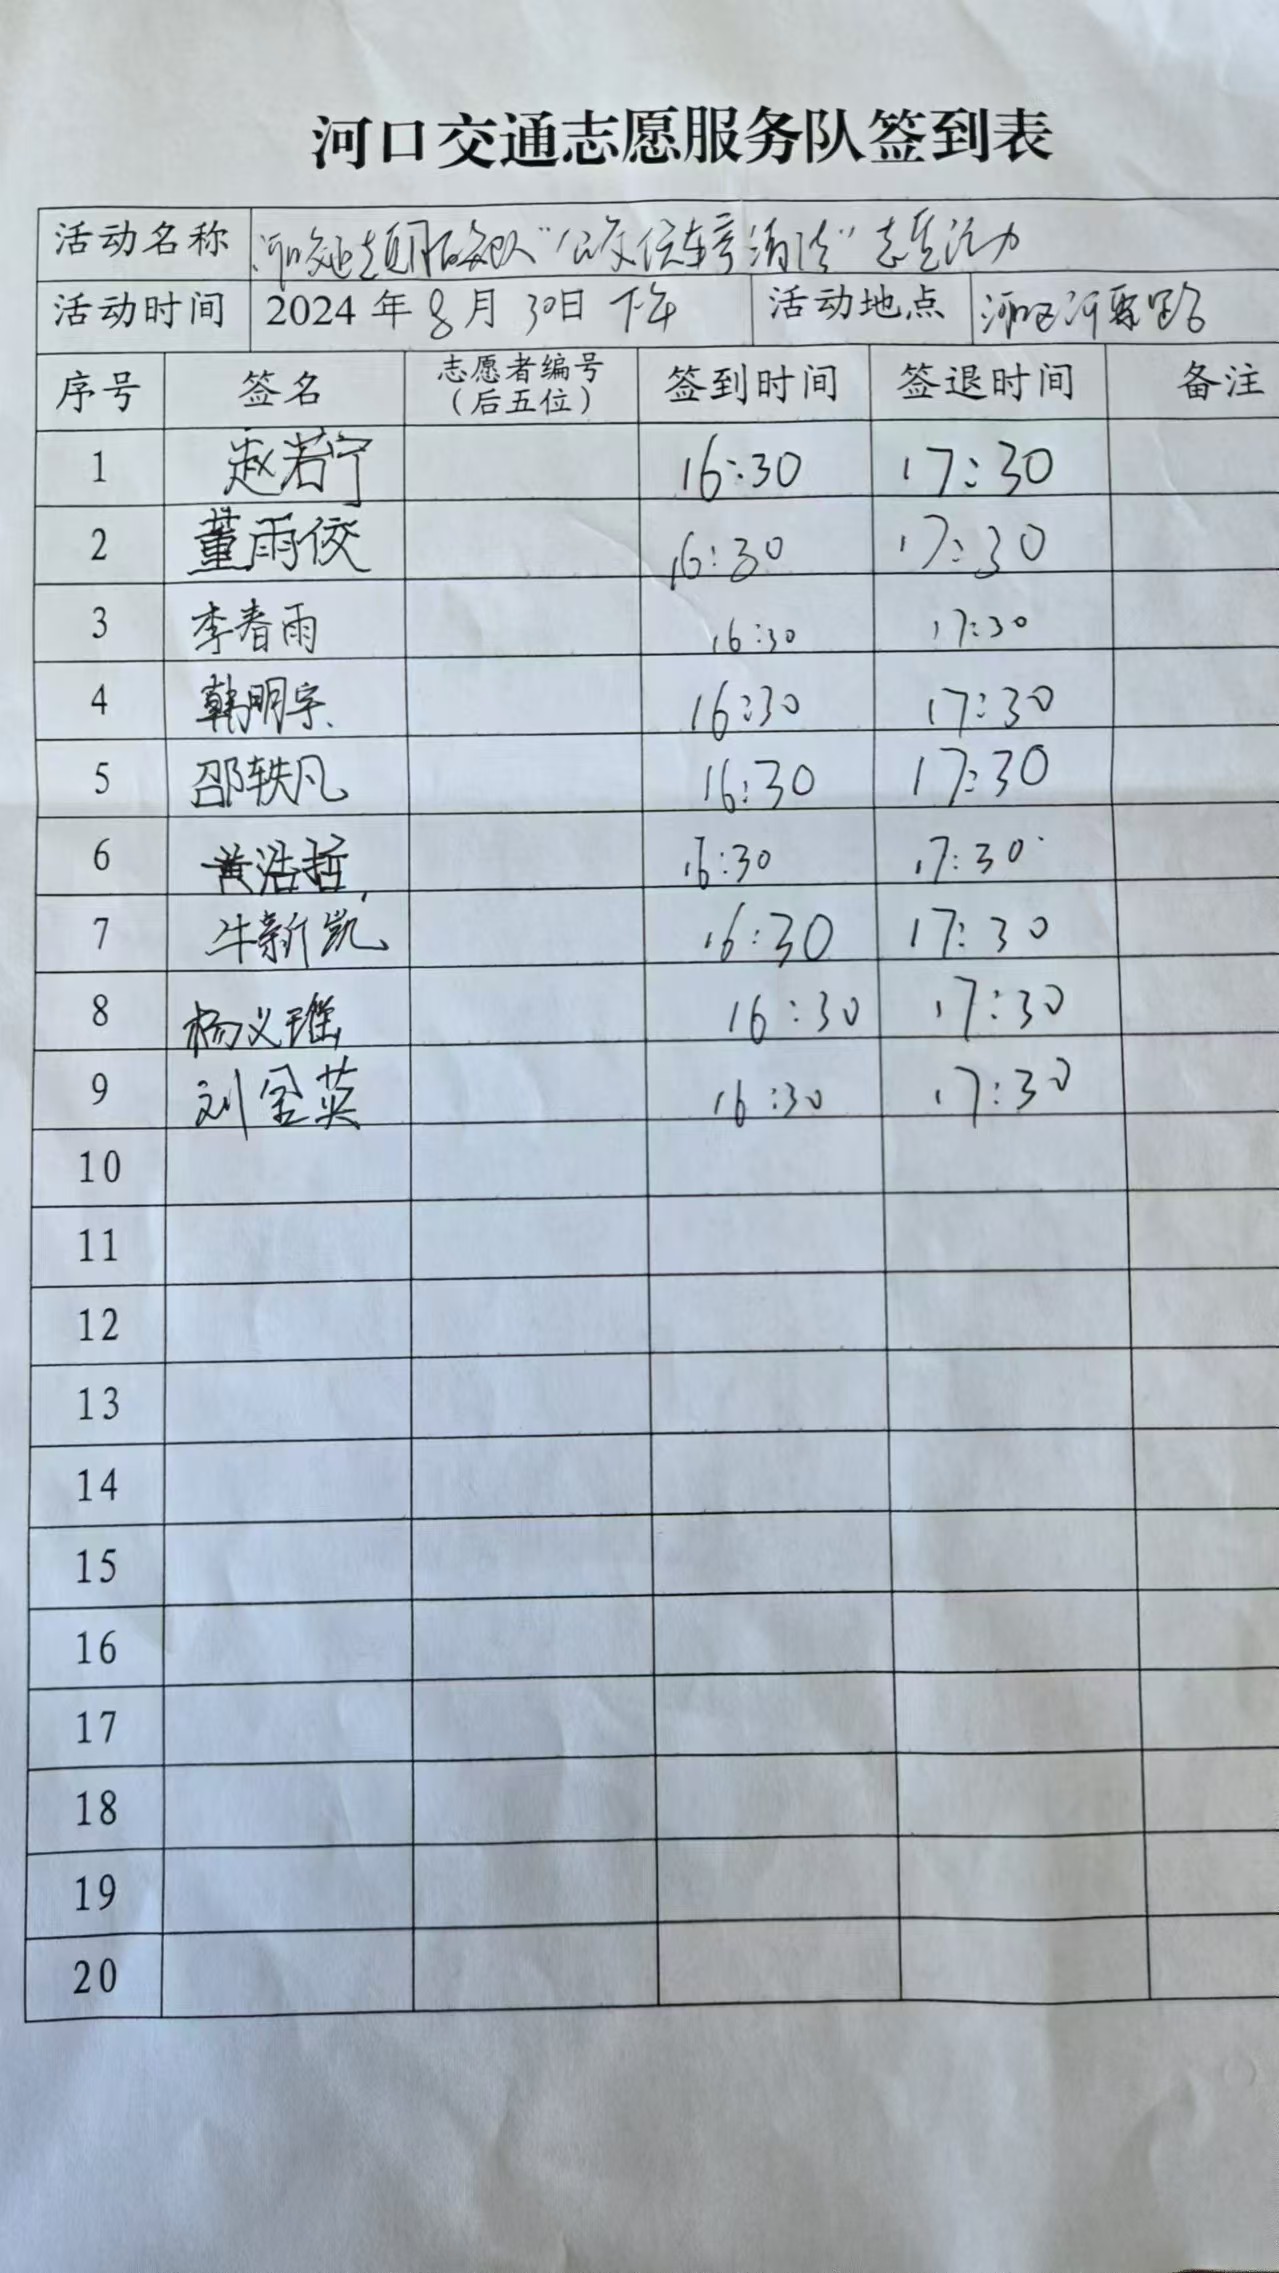 河口交通志愿服务队签到表
活动名称 河口交通志愿服务队“公交候车亭清洁”志愿活动
活动时间 2024年8月30日下午 活动地点 河口区河聚路
序号 签名 志愿者编号（后五位） 签到时间 签退时间 备注
1 赵若宁 16:30 17:30
2 董雨佼 16:30 17:30
3 李春雨 16:30 17:30
4 韩明宗 16:30 17:30
5 邵轶凡 16:30 17:30
6 黄浩哲 16:30 17:30
7 牛新凯 16:30 17:30
8 杨义瑶 16:30 17:30
9 刘金英 16:30 17:30
10
11
12
13
14
15
16
17
18
19
20